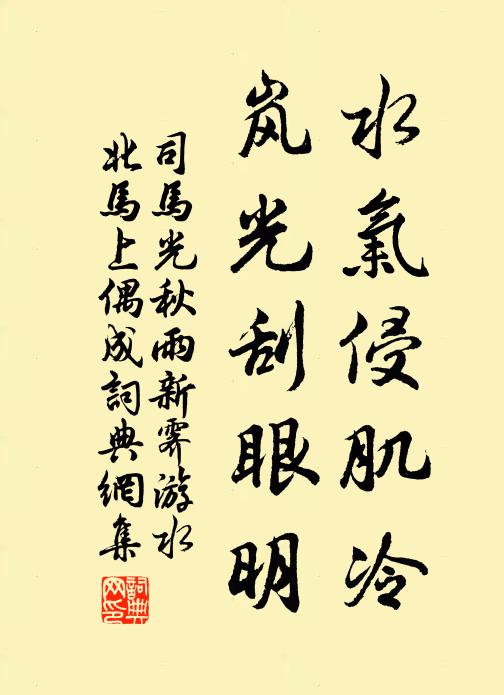 水氣侵肌冷
岚光刮眼明
司馬光秋雨新霽游水
北馬上偶成詞典網集